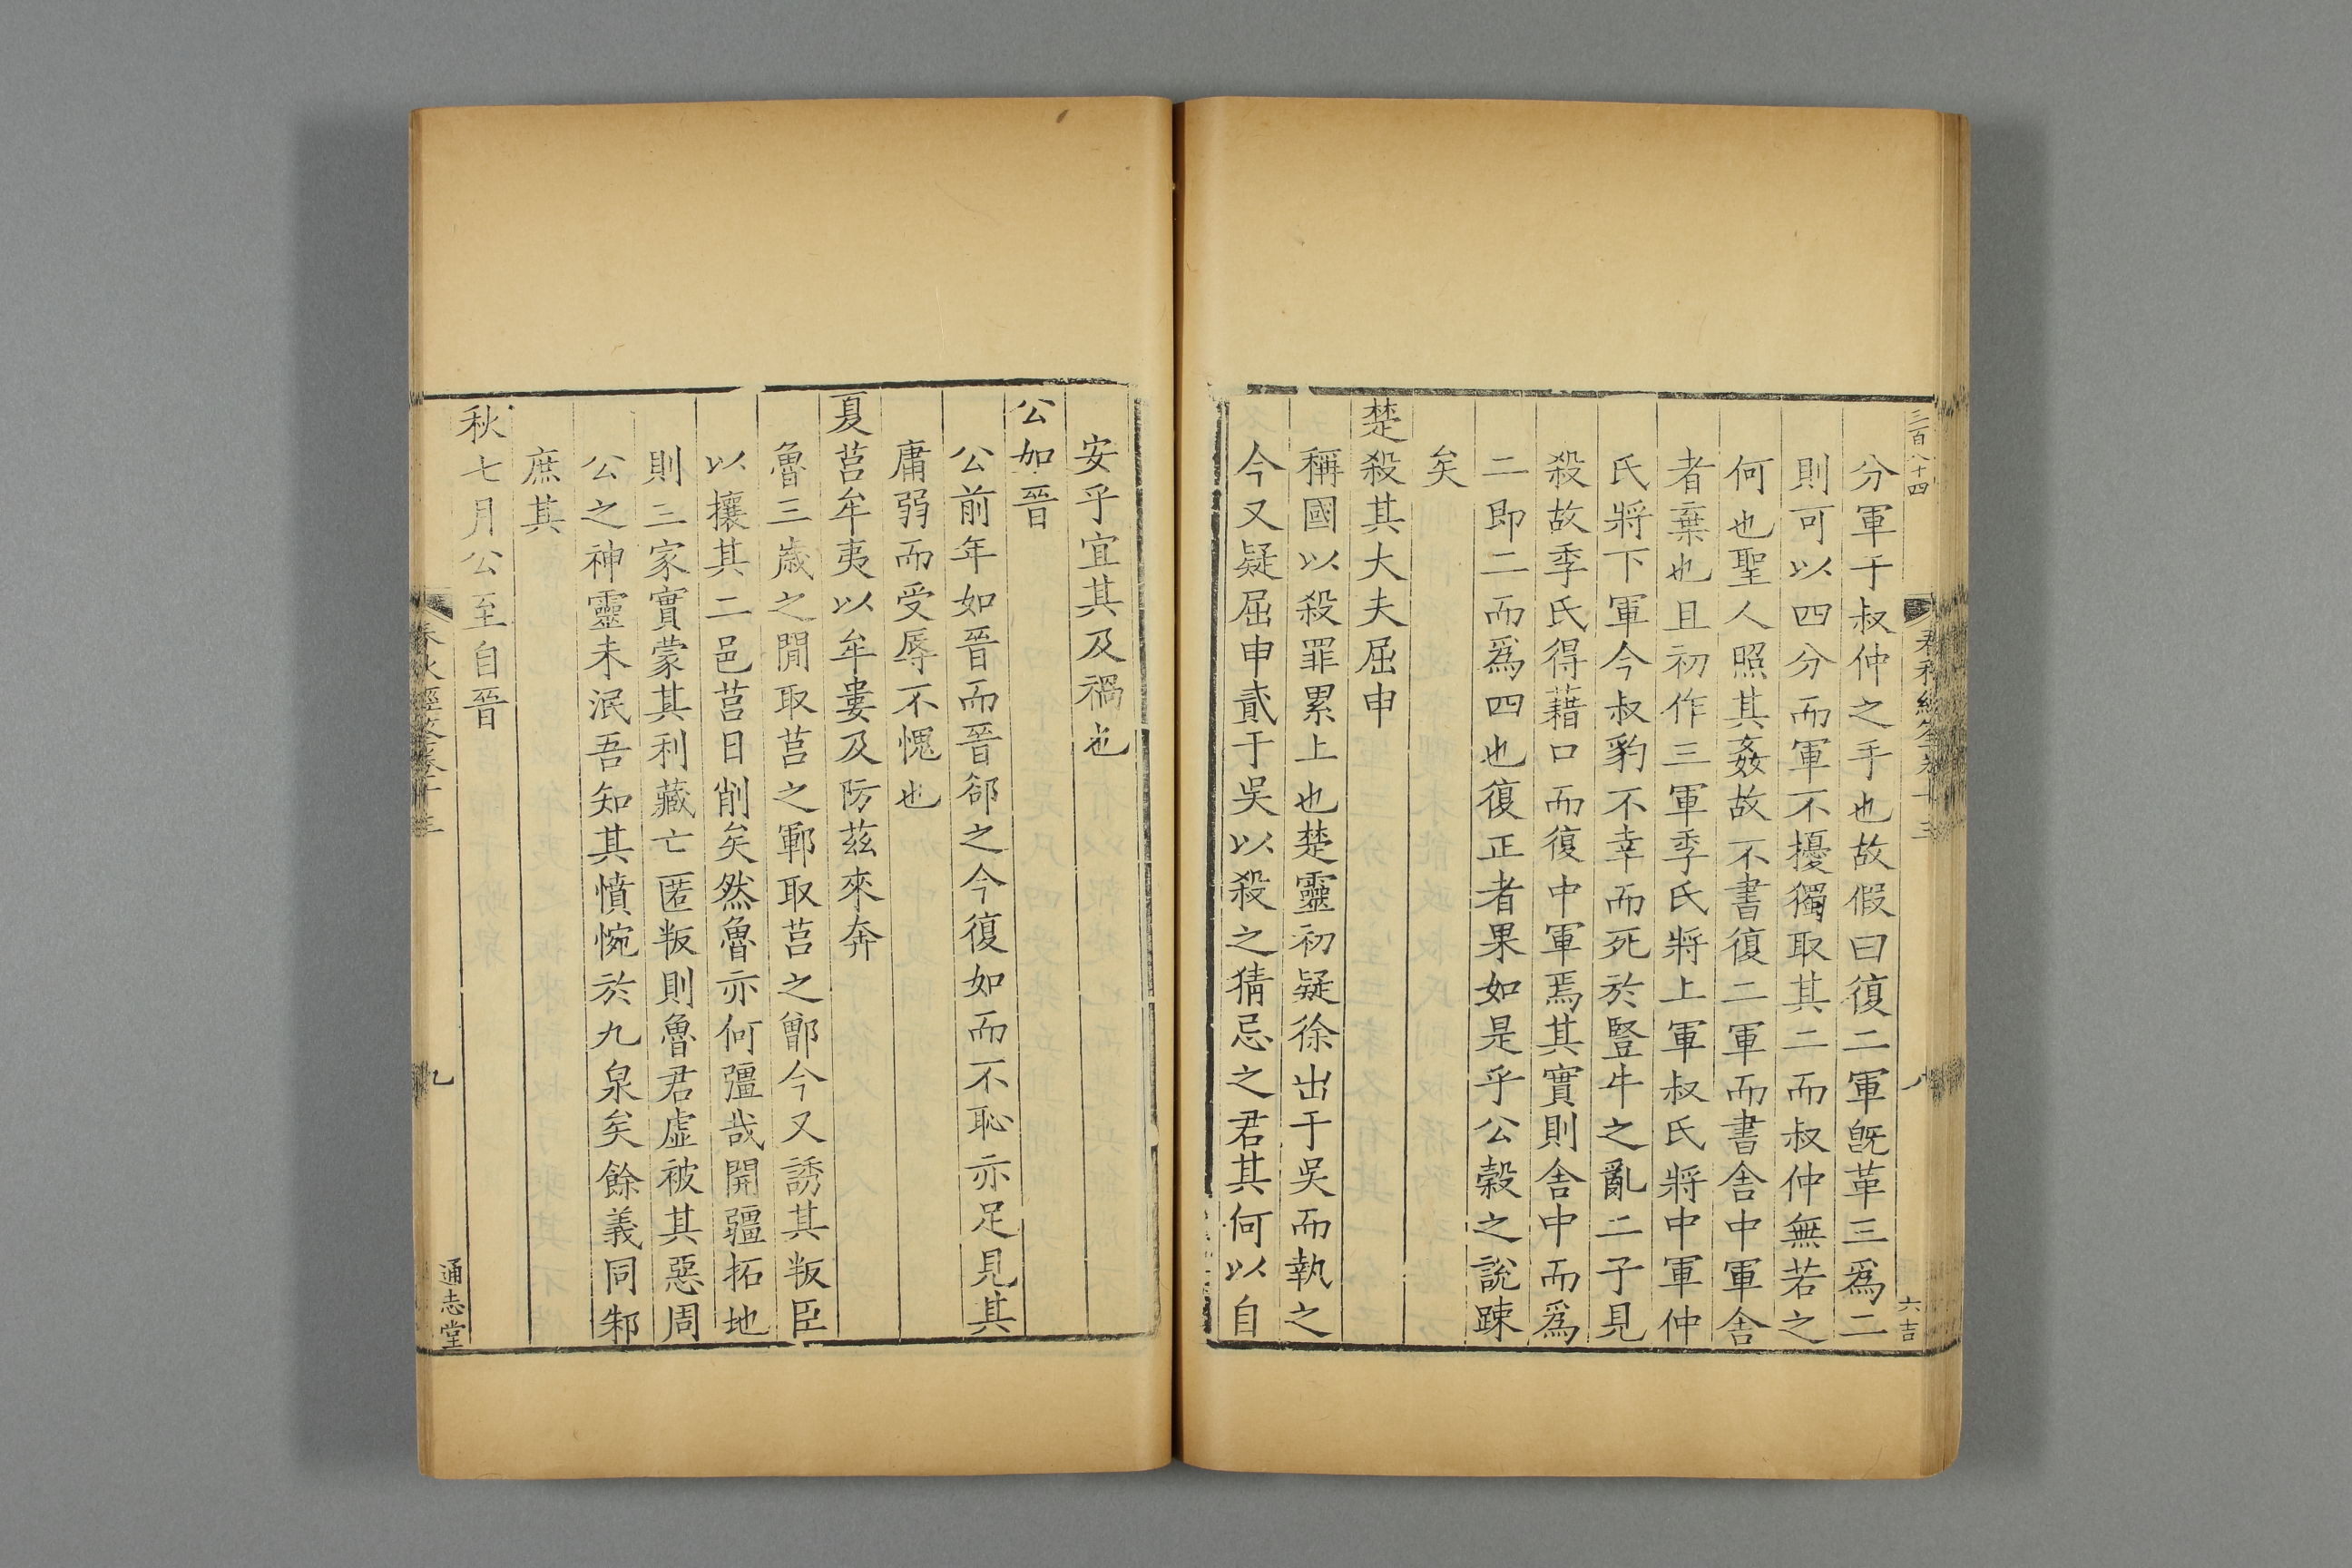 三百八十四
六吉
分軍于叔仲之手也故假曰復二軍旣革三爲二
則可以四分而軍不擾獨取其二而叔仲無若之
何也聖人照其姦故不書復二軍而書舍中軍舍
者棄也且初作三軍季氏將上軍叔氏將中軍仲
氏將下軍今叔豹不幸而死於豎牛之亂二子見
殺故季氏得藉口而復中軍焉其實則舍中而爲
二即二而爲四也復正者果如是乎公榖之說踈
矣
楚殺其大夫屈申
稱國以殺罪累上也楚靈初疑徐出于吳而執之
今又疑屈申貳于吳以殺之猜忌之君其何以自
安乎宜其及禍也
公如晉
公前年如晉而晉郤之今復如而不恥亦足見其
庸弱而受辱不愧也
夏莒牟夷以牟婁及防茲來奔
魯三歲之間取莒之鄆取莒之鄫今又誘其叛臣
以攘其二邑莒日削矣然魯亦何彊哉開疆拓地
則三家實蒙其利藏亡匿叛則魯君虛被其惡周
公之神靈未泯吾知其憤惋於九泉矣餘義同邾
庶其
秋七月公至自晉
春秋經筌卷十三
九
通志堂